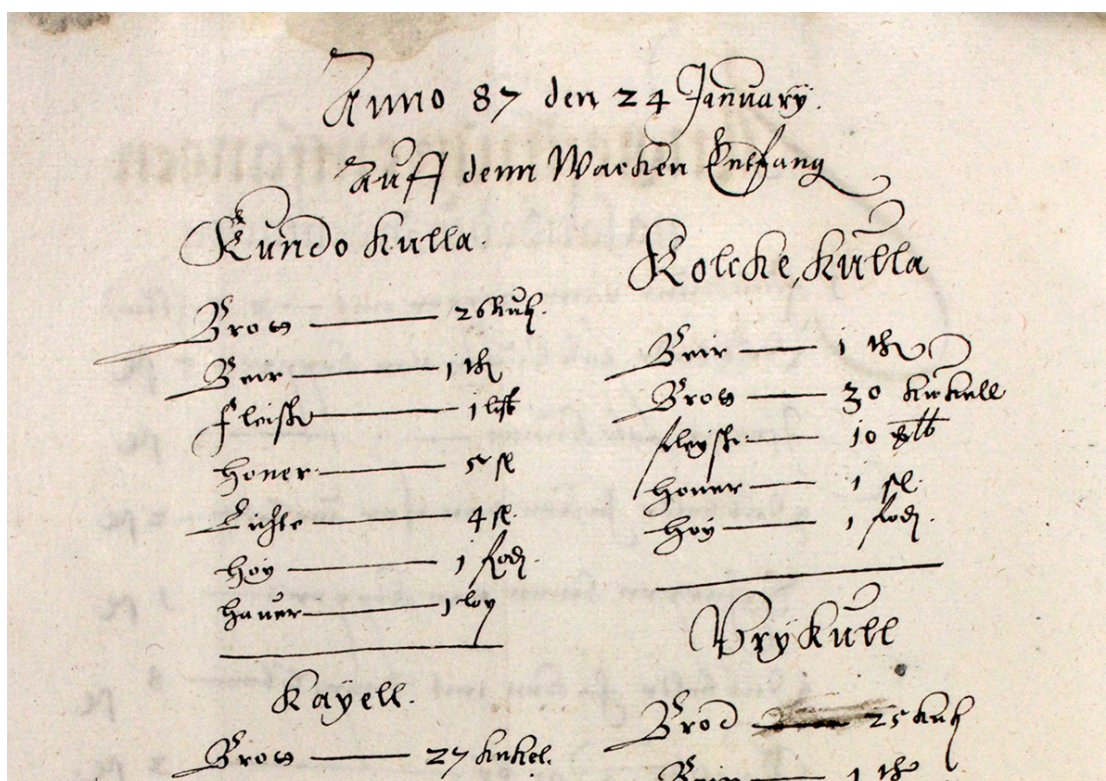 Anno 87 den 24 January.
Auff denn Wacken Entfang
Kundo kulla.
Brott —— 26 Kuk.
Beir —— 1 th
Fleisk —— 1 l℔
Honer —— 5 st
Lichte —— 4 st.
Hoy —— 1 fod.
Hauer —— 1 lop
Kayell.
Brott —— 27 kukel.
Kolcke, kulla
Beir —— 1 th
Brott —— 30 kukell
fleysk —— 10 ℔
Honer —— 1 st.
Hoy —— 1 fod.
Vrykull
Brod —— 25 kuk
Beir —— 1 th